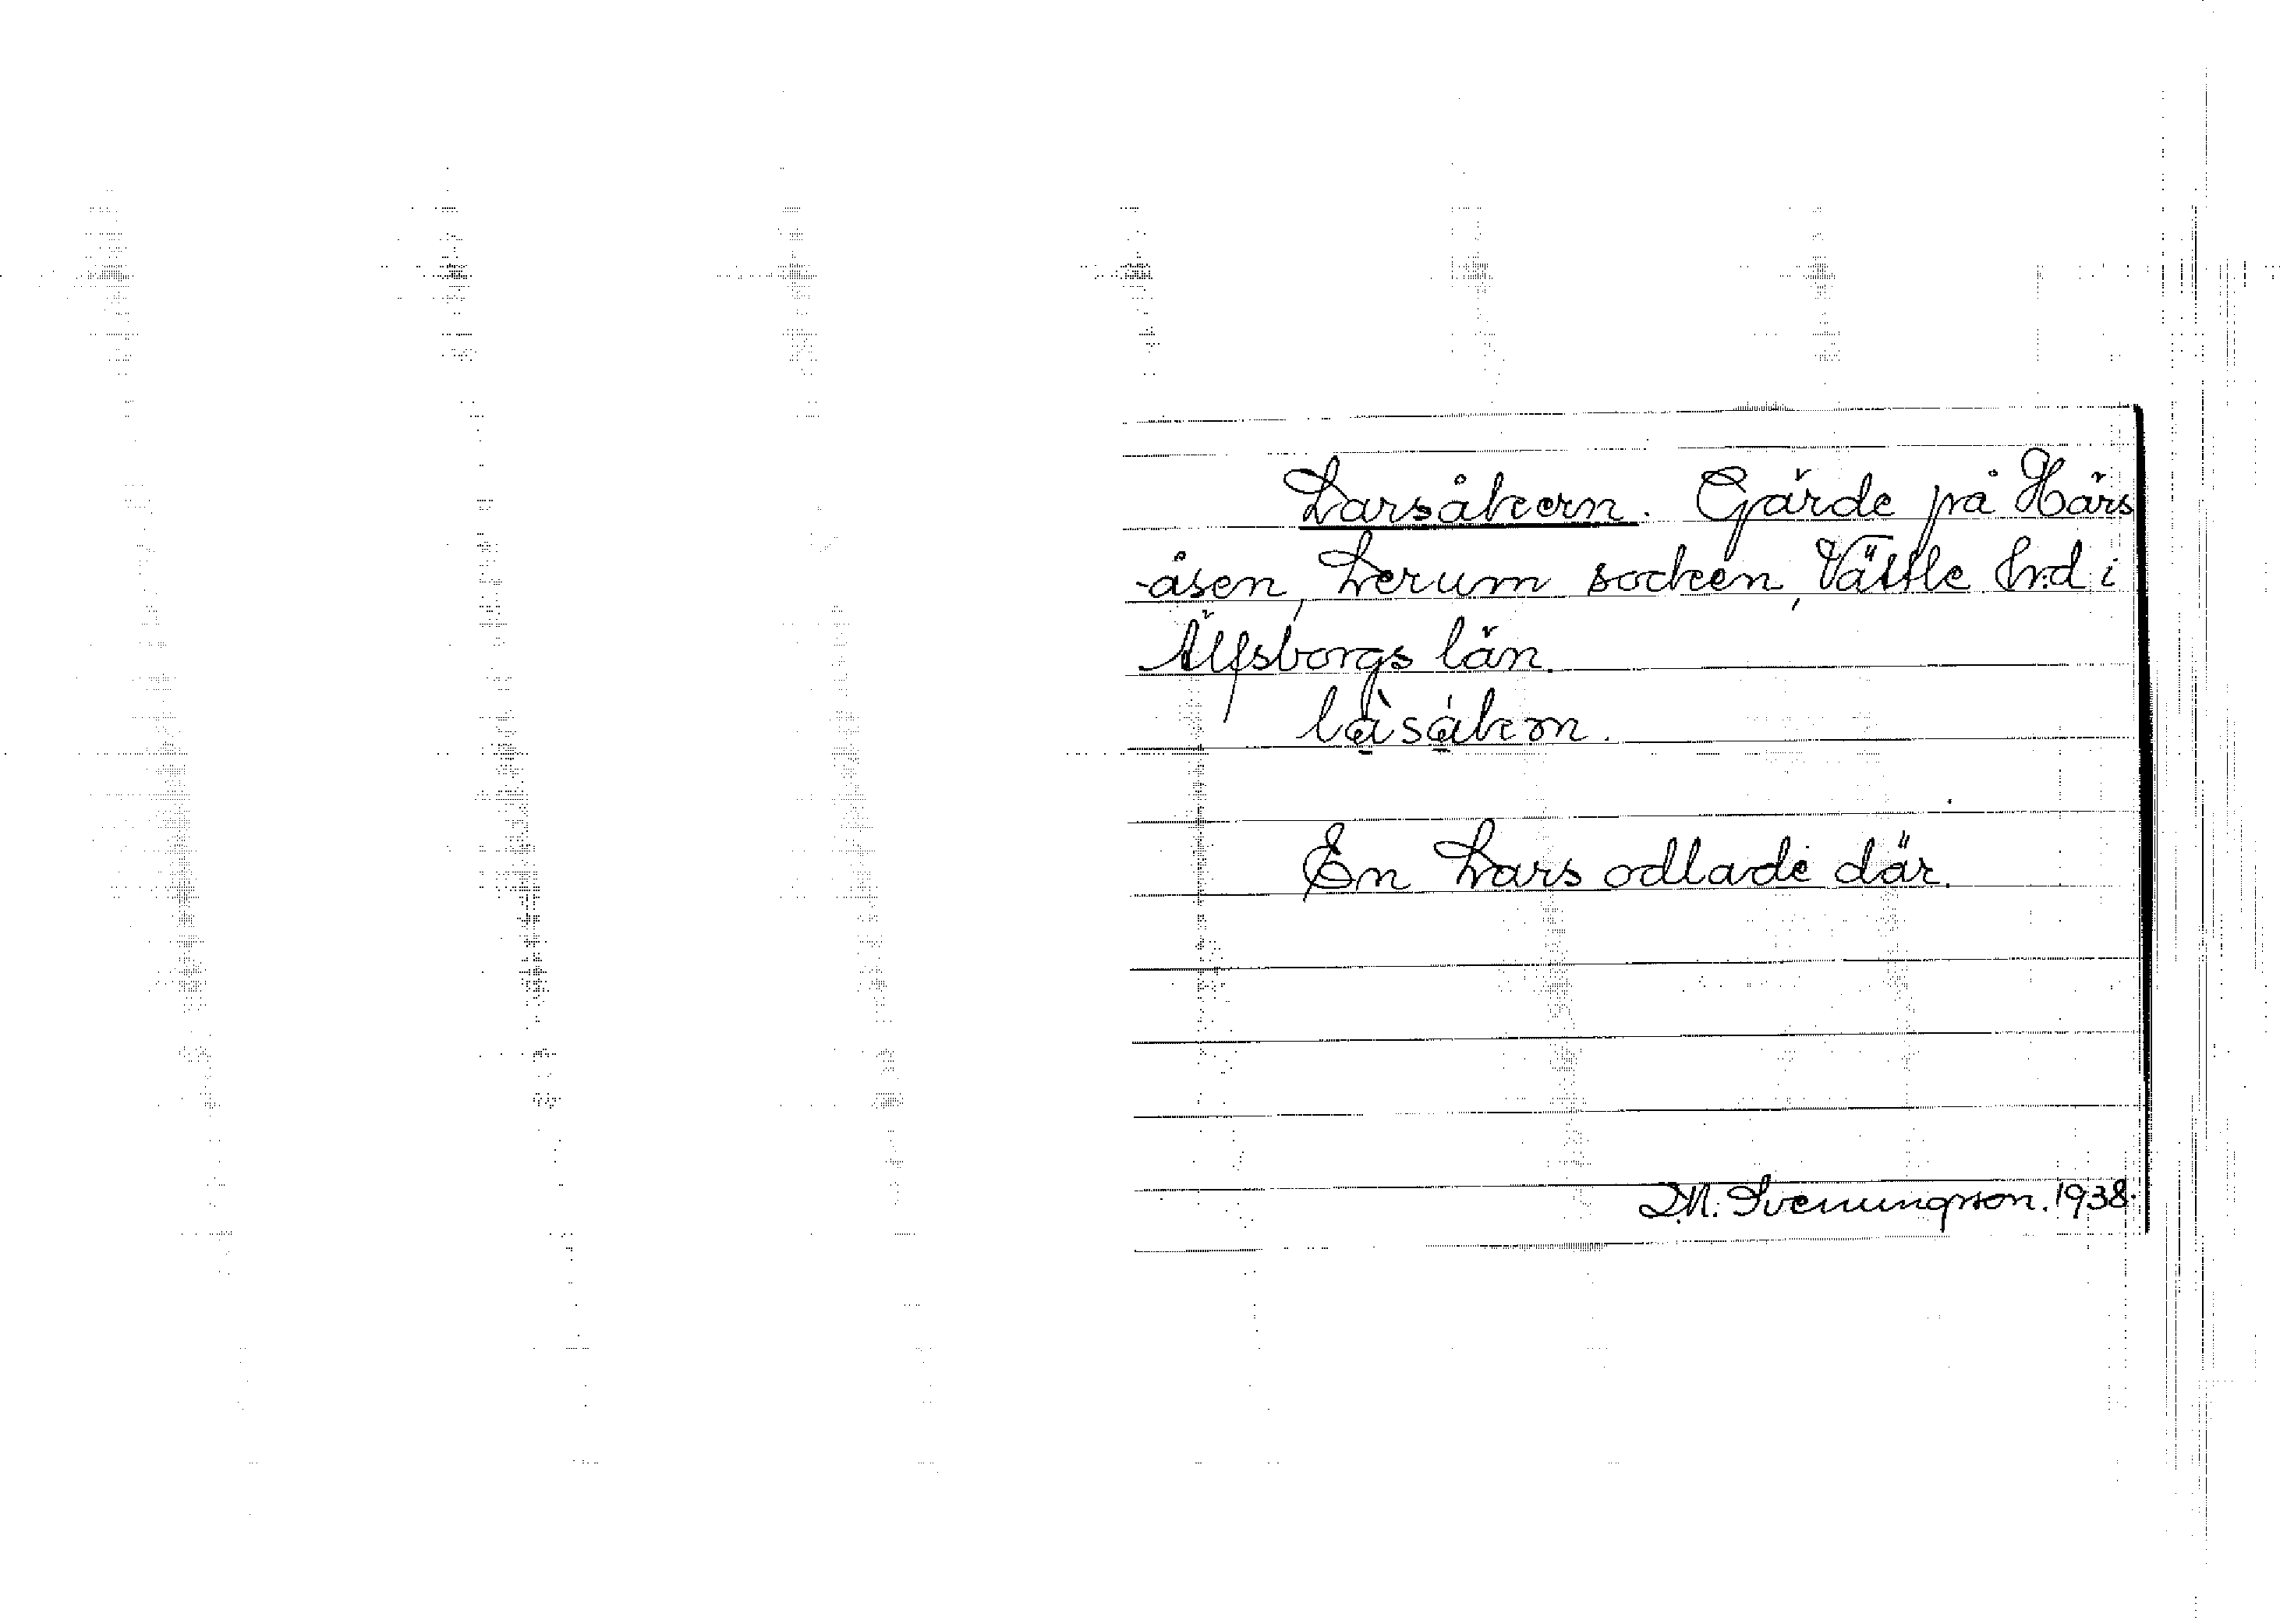 Larsåkern. Gärde på Härs
-åsen, Lerum socken, Vättle hrd i
Älfsborgs län.
làsåkern.
En Lars odlade där.
D.N. Svenungsson. 1938.